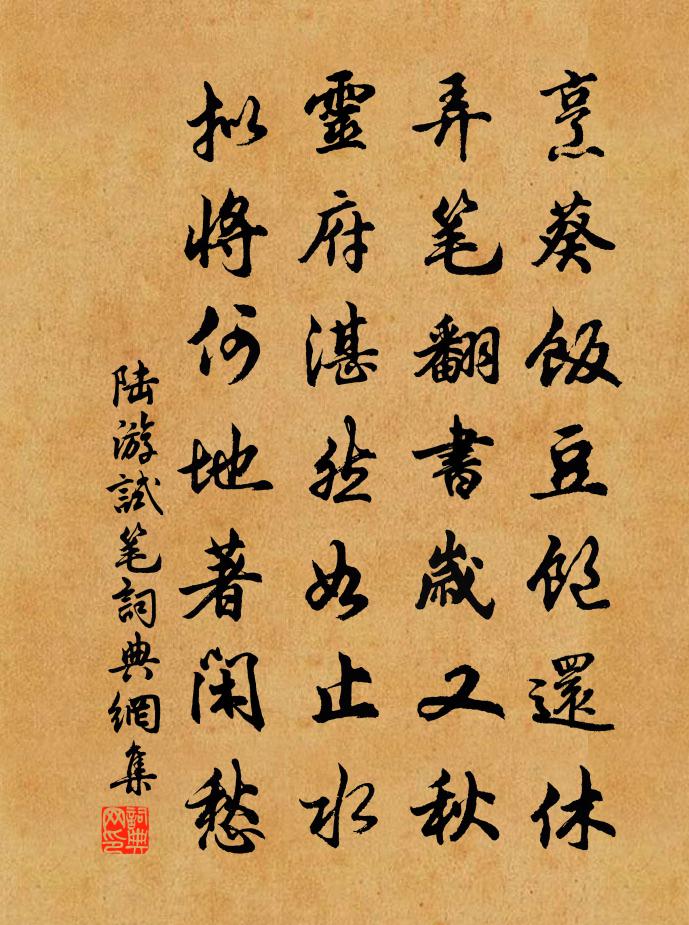 烹葵飯豆飽還休
弄笔翻書歲又秋
靈府湛然如止水
拟將何地著閑愁
陆游試笔詞典網集
詞典
网印